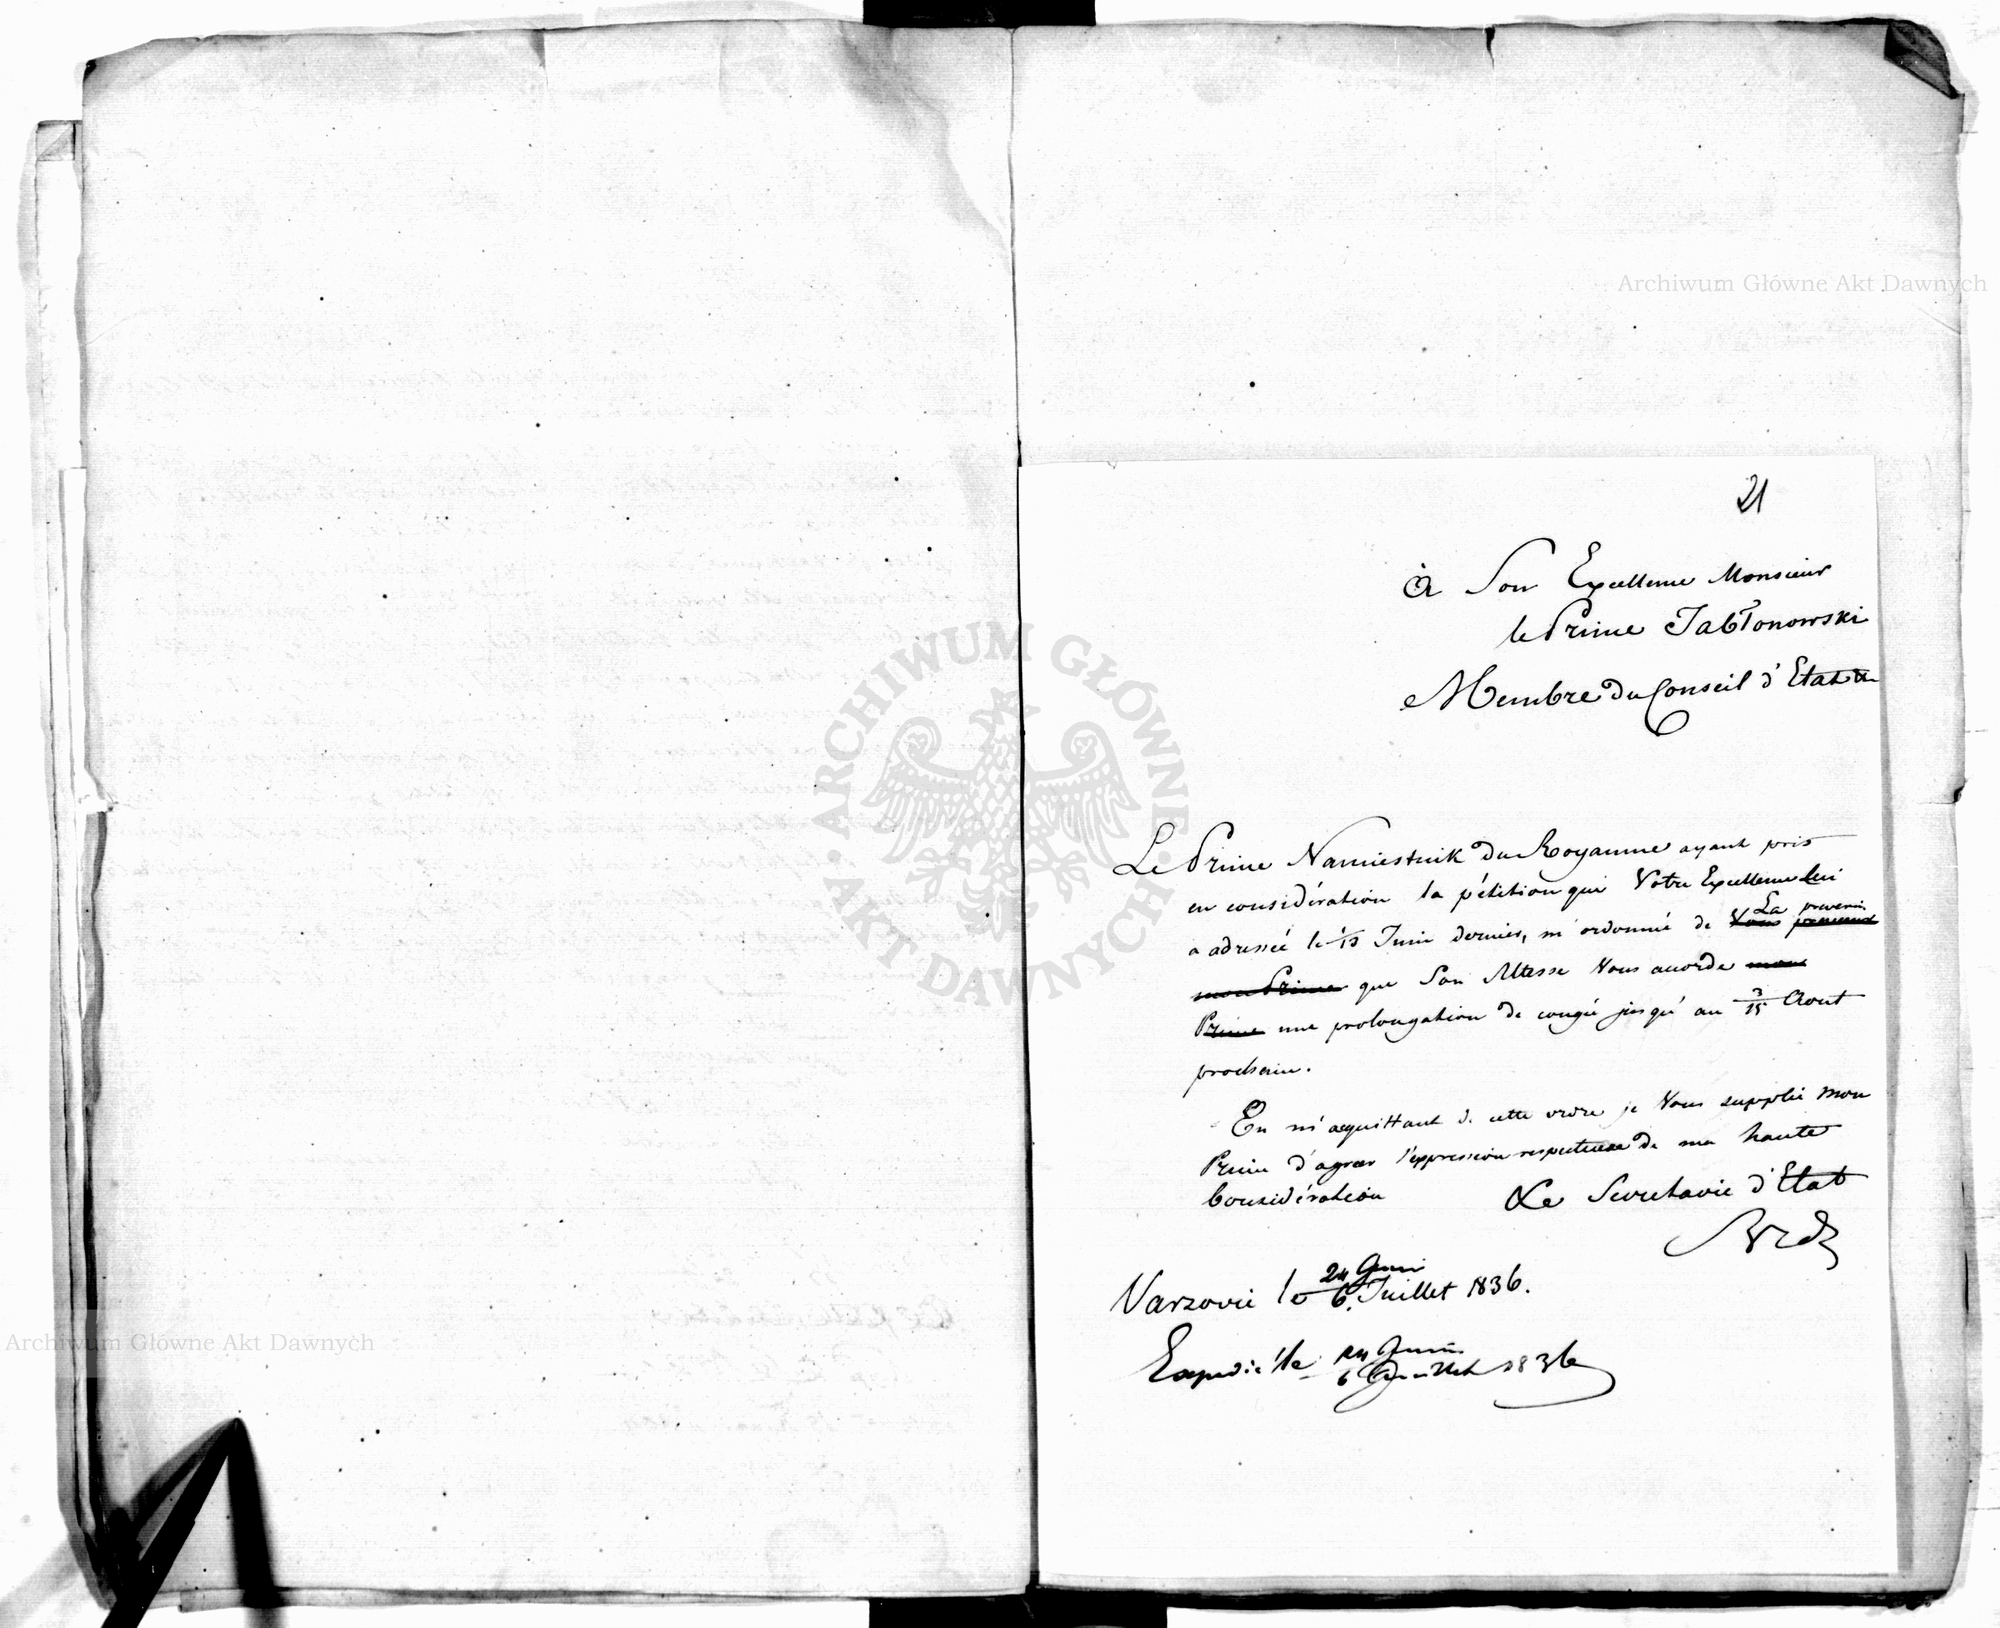 21
Archiwum Główne Akt Dawnych
À Son Excellence Monsieur
le Prince Jabłonowski
Membre du Conseil d'Etat
Le Prince Namiestnik du Royaume ayant pris
en considération la pétition que Votre Excellence Lui
La prevenir
a adressée le 1/13 Juin dernier, m'ordonné de Vous
mon Prince que Son Altesse Vous accorde mon
Prince une prolongation de congé jusqu'au 3/15 Aout
prochain.
En m'acquittant de cette ordre je Vous supplie mon
Prince d'agreer l'expression respectueuse de ma haute
Considération Le Secretaire d'Etat
24 Juin
Varsovie le 6. Juillet 1836.
24 Juin
Expedié le 6 Juillet 1836
ARCHIWUM GŁÓWNE
AKT DAWNYCH
Archiwum Główne Akt Dawnych